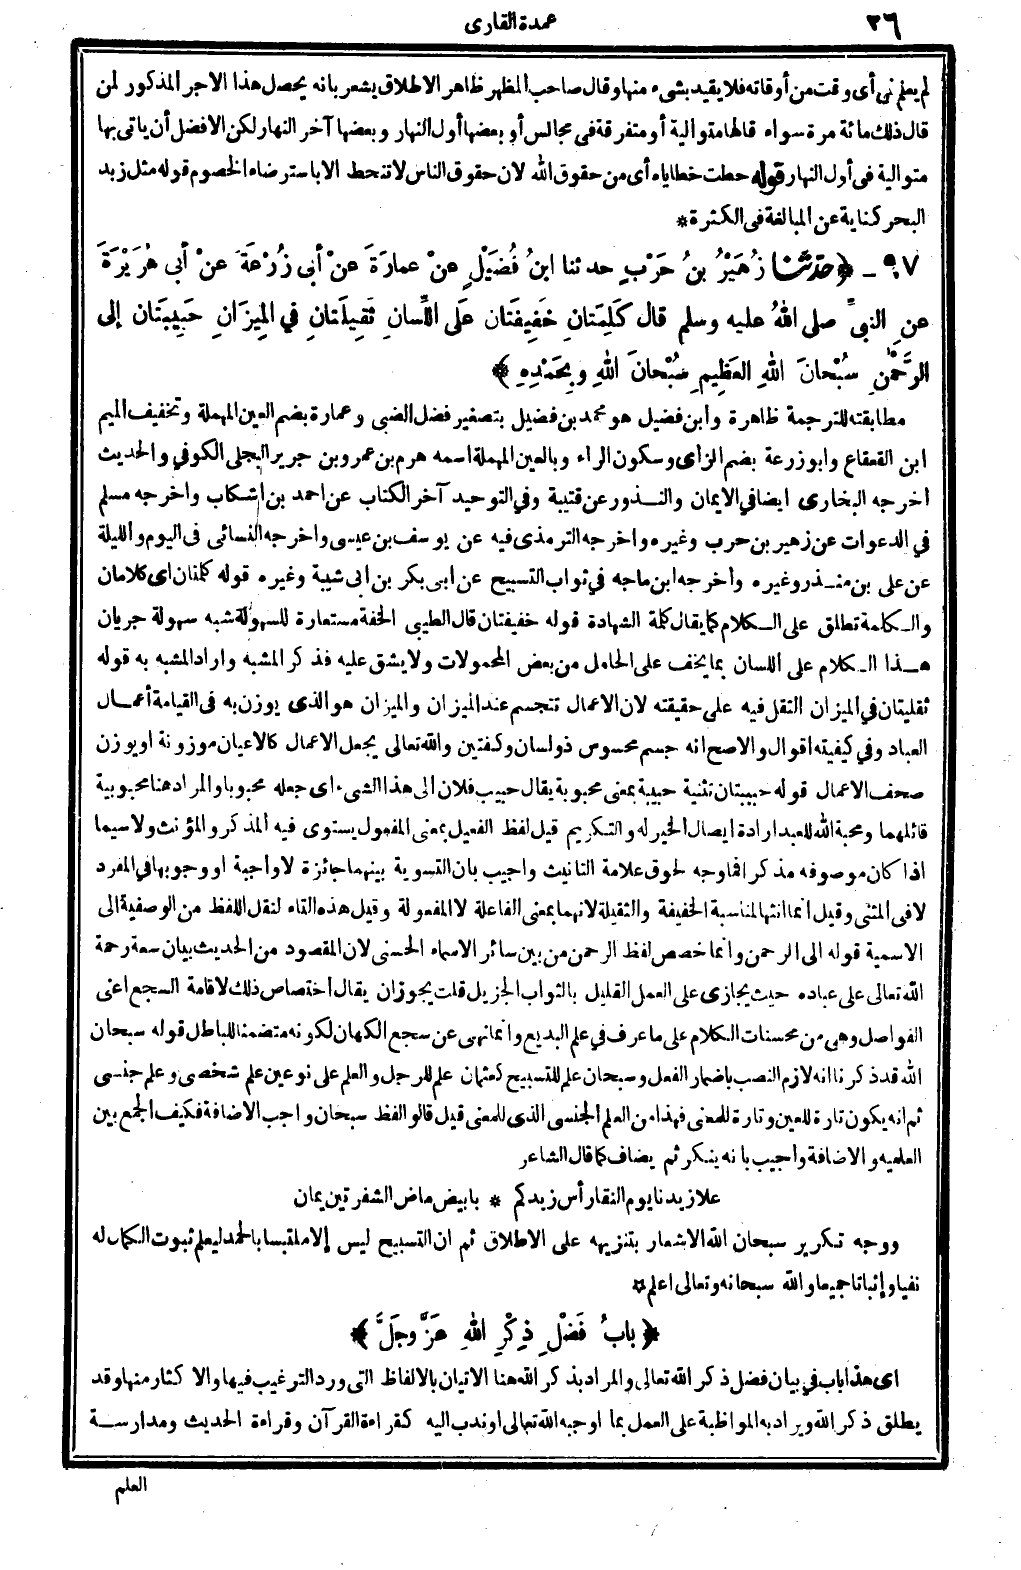 ٢٦
عمدة القارى
لم يعلم فى أى وقت من أوقاته فلا يقيد بشىء منها وقال صاحب المظهر ظاهر الاطلاق يشعر بانه يحصل هذا الاجر المذكور لمن
قال ذلك مائة مرة سواء قالها متوالية أو متفرقة فى مجالس أو بعضها أول النهار وبعضها آخر النهار لكن الافضل أن ياتى بها
متوالية فى أول النهار قوله حطت خطاياه أى من حقوق الله لان حقوق الناس لا تنحط الا باسترضاء الخصوم قوله مثل زبد
البحر كناية عن المبالغة فى الكثرة *
٩٧ ـ ﴿ حَدَّثَنَا زُهَيْرُ بنُ حَرْبٍ حدثنا ابنُ فُضَيْلٍ عنْ عمارَةَ عنْ أبى زُرْعَةَ عنْ أبى هُرَيْرَةَ
عنِ النبىِّ صلى اللهُ عليه وسلم قال كَلِمَتَانِ خَفِيفَتَانِ عَلَى اللِّسانِ ثَقِيلَتَانِ فِي المِيزَانِ حَبِيبَتَانِ إلى
الرَّحْمٰنِ سُبْحانَ اللهِ العَظِيمِ سُبْحانَ اللهِ وبِحَمْدِهِ ﴾
مطابقته للترجمة ظاهرة وابن فضيل هو محمد بن فضيل بتصغير فضل الضبى وعمارة بضم العين المهملة وتخفيف الميم
ابن القعقاع وابو زرعة بضم الزاى وسكون الراء وبالعين المهملة اسمه هرم بن عمرو بن جرير البجلى الكوفي والحديث
اخرجه البخارى ايضا في الايمان والنذور عن قتيبة وفي التوحيد آخر الكتاب عن احمد بن اشكاب واخرجه مسلم
في الدعوات عن زهير بن حرب وغيره واخرجه الترمذى فيه عن يوسف بن عيسى واخرجه النسائى فى اليوم والليلة
عن على بن منذر وغيره واخرجه ابن ماجه في ثواب التسبيح عن ابى بكر بن ابى شيبة وغيره قوله كلمتان اى كلامان
والكلمة تطلق على الكلام كما يقال كلمة الشهادة قوله خفيفتان قال الطيبى الخفة مستعارة للسهولة شبه سهولة جريان
هذا الكلام على اللسان بما يخف على الحامل من بعض المحمولات ولا يشق عليه فذكر المشبه واراد المشبه به قوله
ثقليتان في الميزان الثقل فيه على حقيقته لان الاعمال تتجسم عند الميزان والميزان هو الذى يوزن به فى القيامة أعمال
العباد وفي كيفيته اقوال والاصح انه جسم محسوس ذو لسان وكفتين والله تعالى يجعل الاعمال كالاعيان موزونة او يوزن
صحف الاعمال قوله حبيبتان تثنية حبيبة بمعنى محبوبة يقال حبيب فلان الى هذا الشىء اى جعله محبوبا والمراد هنا محبوبية
قائلهما ومحبة الله للعبد ارادة ايصال الخير له والتكريم قيل لفظ الفعيل بمعنى المفعول يستوى فيه المذكر والمؤنث ولا سيما
اذا كان موصوفه مذكرا فما وجه لحوق علامة التانيث واجيب بان التسوية بينهما جائزة لا واجبة او وجوبها في المفرد
لا فى المثنى وقيل انما انثها لمناسبة الخفيفة والثقيلة لانهما بمعنى الفاعلة لا المفعولة وقيل هذه التاء لنقل اللفظ من الوصفية الى
الاسمية قوله الى الرحمن وانما خصص لفظ الرحمن من بين سائر الاسماء الحسنى لان المقصود من الحديث بيان سعة رحمة
الله تعالى على عباده حيث يجازى على العمل القليل بالثواب الجزيل قلت يجوز ان يقال اختصاص ذلك لاقامة السجع اعنى
الفواصل وهى من محسنات الكلام على ما عرف في علم البديع وانما نهى عن سجع الكهان لكونه متضمنا للباطل قوله سبحان
الله قد ذكرنا انه لازم النصب باضمار الفعل وسبحان علم للتسبيح كعثمان علم للرجل والعلم على نوعين علم شخصى وعلم جنسى
ثم انه يكون تارة للعين وتارة للمعنى فهذا من العلم الجنسى الذى للمعنى قيل قالوا لفظ سبحان واجب الاضافة فكيف الجمع بين
العلميه والاضافة وأجيب بانه ينكر ثم يضاف كما قال الشاعر
علا زيدنا يوم النقا رأس زيدكم * بابيض ماض الشفرتين يمان
ووجه تكرير سبحان الله الاشعار بتنزيهه على الاطلاق ثم ان التسبيح ليس إلا ملتبسا بالحمد ليعلم ثبوت الكمال له
نفيا وإثباتا جميعا والله سبحانه وتعالى اعلم *
﴿ بابُ فَضْلِ ذِكْرِ اللهِ عَزَّ وجَلَّ ﴾
اى هذا باب في بيان فضل ذكر الله تعالى والمراد بذكر الله هنا الاتيان بالالفاظ التى ورد الترغيب فيها والاكثار منها وقد
يطلق ذكر الله ويراد به المواظبة على العمل بما اوجبه الله تعالى او ندب اليه كقراءة القرآن وقراءة الحديث ومدارسة
العلم